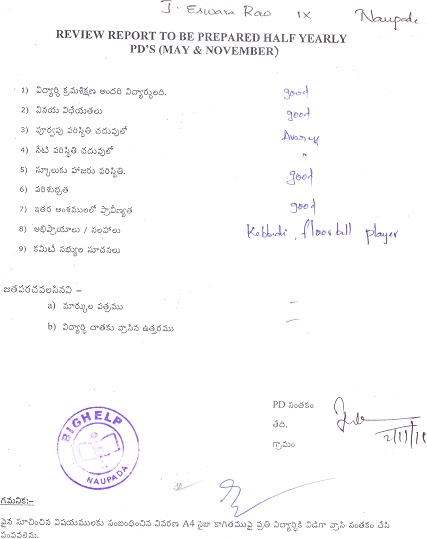 J. Eswara Rao IX Naupada
REVIEW REPORT TO BE PREPARED HALF YEARLY
PD'S (MAY & NOVEMBER)
1) విద్యార్థి క్రమశిక్షణ అందరి విద్యార్థులది. good
2) వినయ విధేయతలు good
3) పూర్వపు పరిస్థితి చదువులో Average
4) నేటి పరిస్థితి చదువులో "
5) స్కూలుకు హాజరు పరిస్థితి. good
6) పరిశుభ్రత
7) ఇతర అంశములలో ప్రావీణ్యత good
8) అభిప్రాయాలు / సలహాలు Kabbadi, floorball player
9) కమిటీ సభ్యుల సూచనలు
జతపరచవలసినవి –
a) మార్కుల పత్రము –
b) విద్యార్థి దాతకు వ్రాసిన ఉత్తరము –
PD సంతకం
తేది.
గ్రామం
BIGHELP
NAUPADA
గమనిక:–
పైన సూచించిన విషయములకు సంబంధించిన వివరణ A4 సైజు కాగితముపై ప్రతి విద్యార్థికి విడిగా వ్రాసి సంతకం చేసి
పంపవలెను.